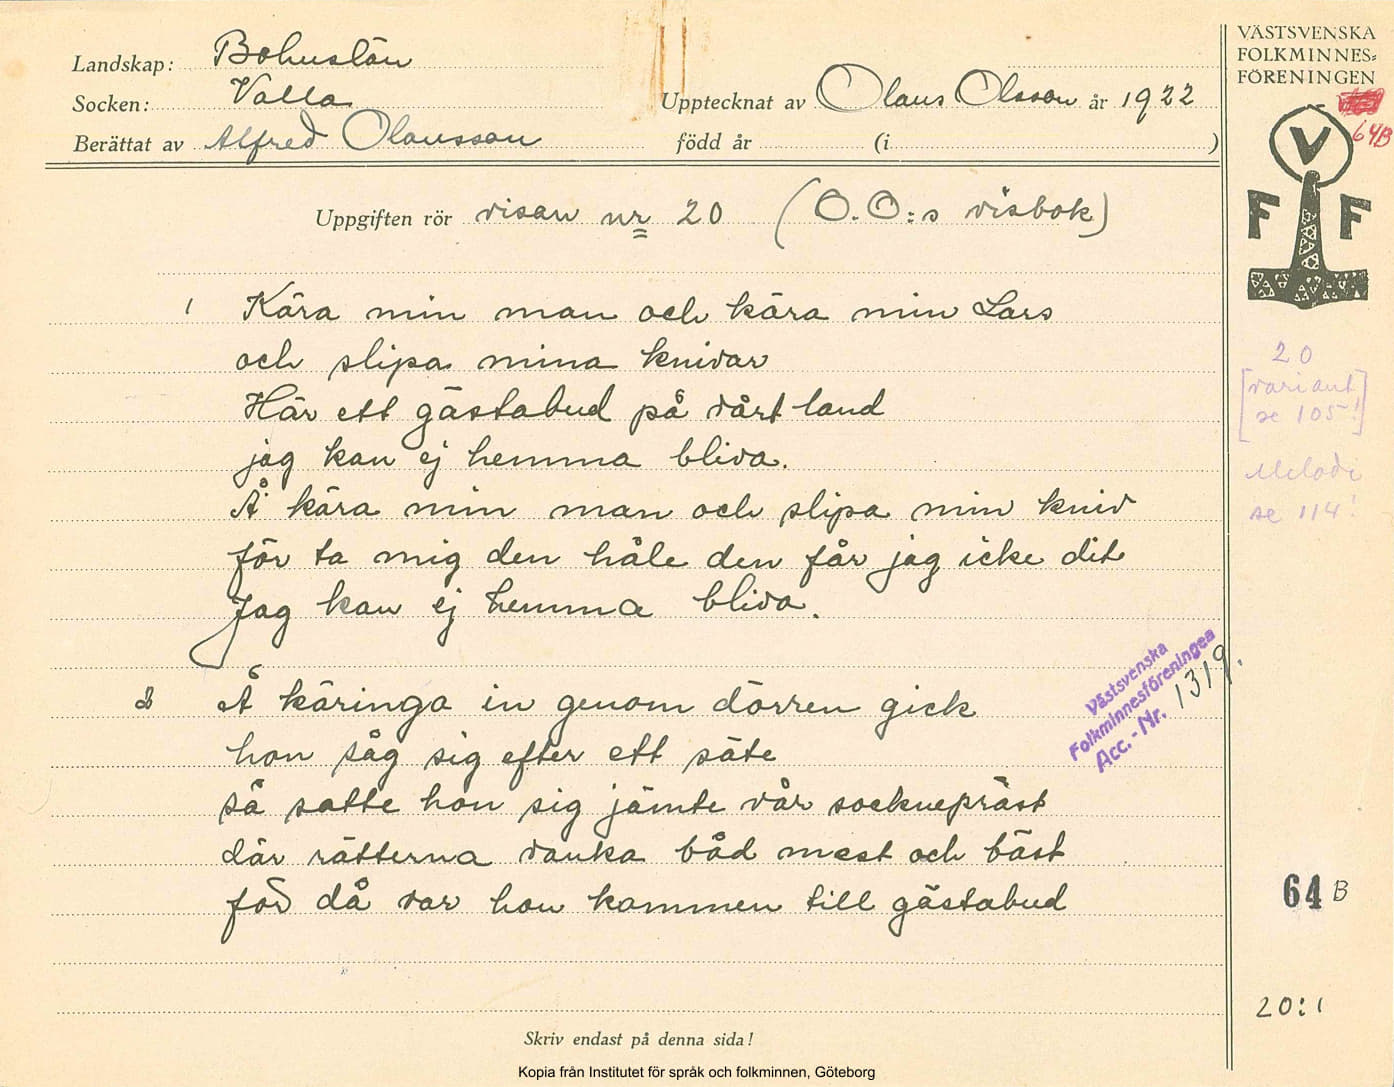 Landskap: Bohuslän
Socken: Valla
Upptecknat av Olaus Olsson år 1922
Berättat av Alfred Olausson
född år (i )
VÄSTSVENSKA
FOLKMINNES=
FÖRENINGEN
64B
V
F F
Uppgiften rör visan nr 20 (O.O:s visbok)
1 Kära min man och kära min Lars
och slipa mina knivar
Här ett gästabud på vårt land
jag kan ej hemma bliva.
Å kära min man och slipa min kniv
för ta mig den håle den får jag icke dit
Jag kan ej hemma bliva.
20
[variant
se 105!]
Melodi
se 114!
2 Å käringa in genom dörren gick
hon såg sig efter ett säte
så satte hon sig jämte vår socknepräst
där rätterna vanka båd mest och bäst
för då var hon kommen till gästabud
Västsvenska
Folkminnesföreningea
Acc.-Nr. 1319.
64 B
20:1
Skriv endast på denna sida!
Kopia från Institutet för språk och folkminnen, Göteborg